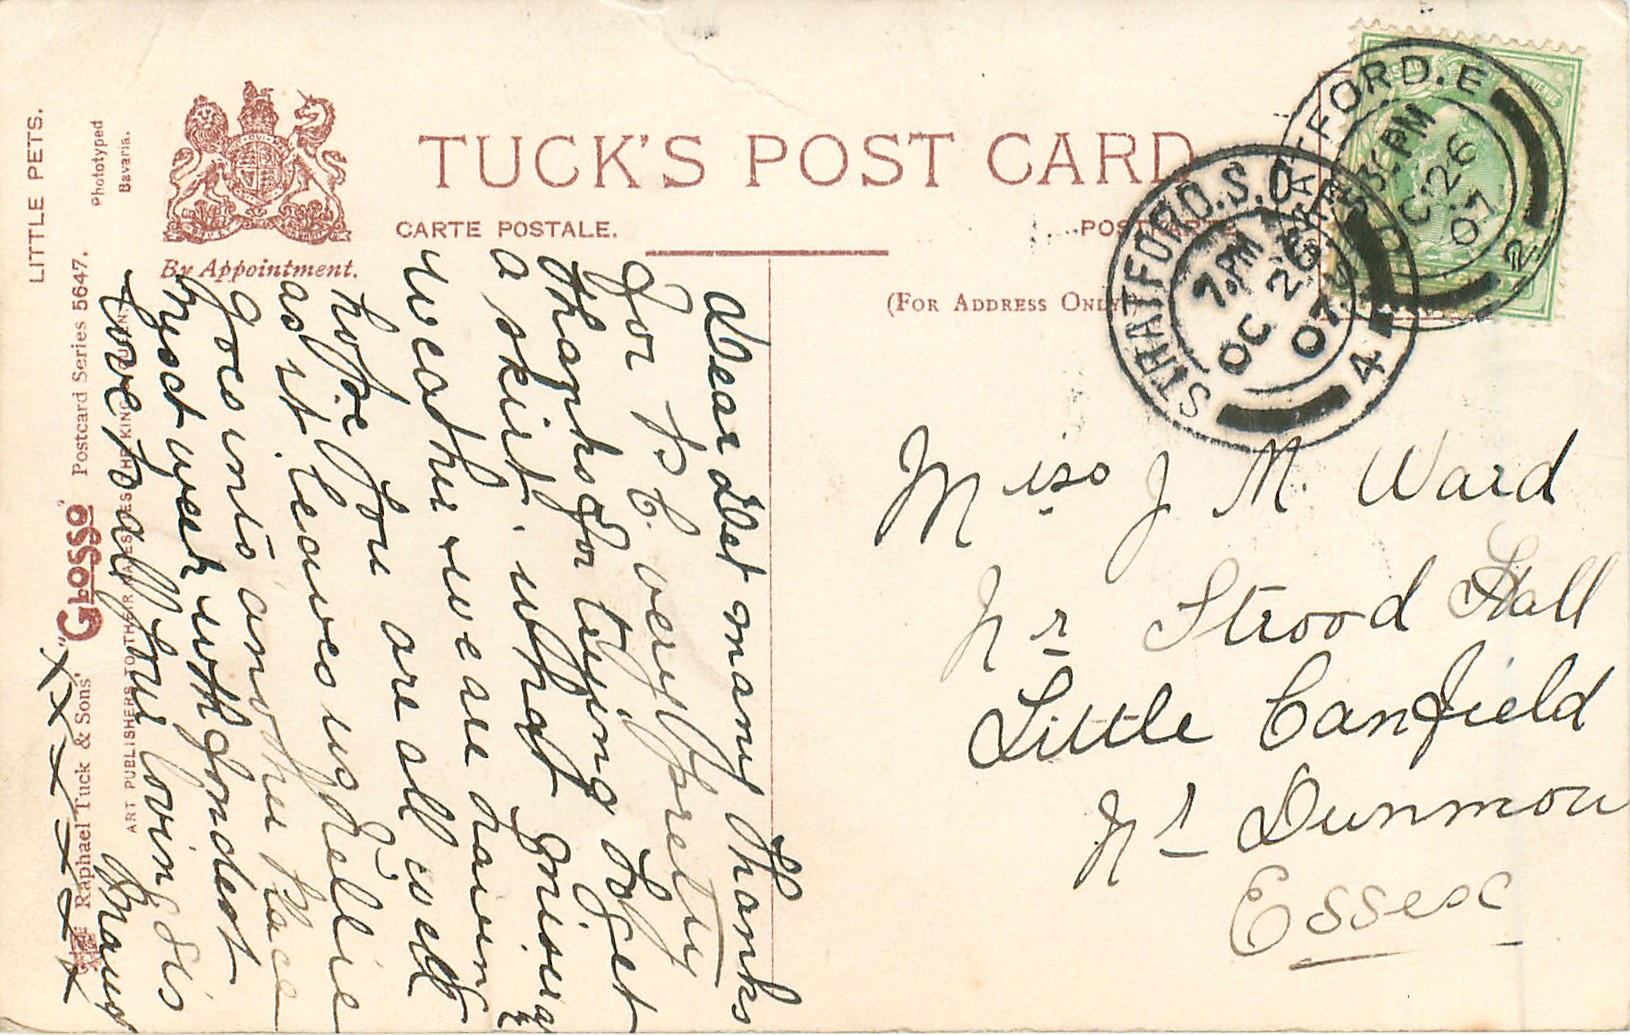 LITTLE PETS.
Phototyped
Bavaria.
By Appointment.
TUCK'S POST CARD
CARTE POSTALE.
(FOR ADDRESS ONLY
"GLOSSO" Postcard Series 5647.
Raphael Tuck & Sons'
ART PUBLISHERS TO THEIR MAJESTIES THE KING & QUEEN.
STRATFORD.E
PM
OC 26
07
2
STRATFORD.S.O
7. PM
OC 26
07
4
Miss J M. Ward
Nr Strood Hall
Little Canfield
Nr Dunmow
Essex
Dear Det many Thanks
for P. C. very pretty
thanks for trying to get
a skirt. what
weather we are having
hope you are all well
as it leaves us Nellie
goes into another place
next week with fondest
love to all your loving Sis
x x x x x x x